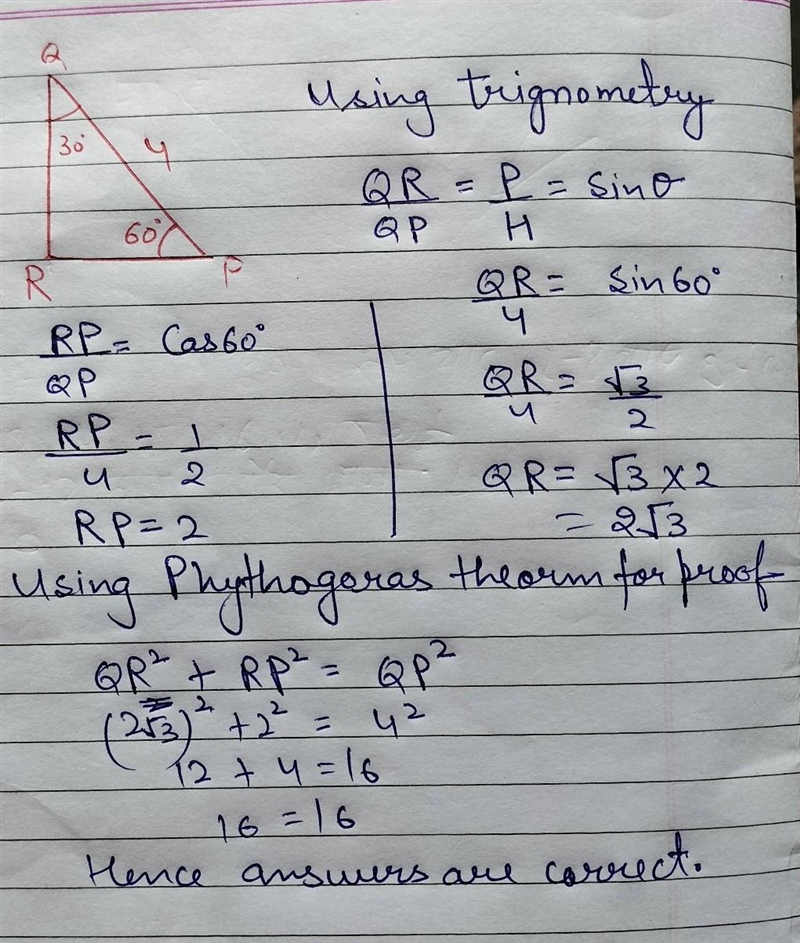 Q
30° 4
60°
R P
Using trignometry
QR/QP = P/H = Sinθ
QR/4 = Sin60°
QR/4 = √3/2
QR = √3 × 2
= 2√3
RP/QP = Cos60°
RP/4 = 1/2
RP = 2
Using Phythogoras theorm for proof-
QR² + RP² = QP²
(2√3)² + 2² = 4²
12 + 4 = 16
16 = 16
Hence answers are correct.